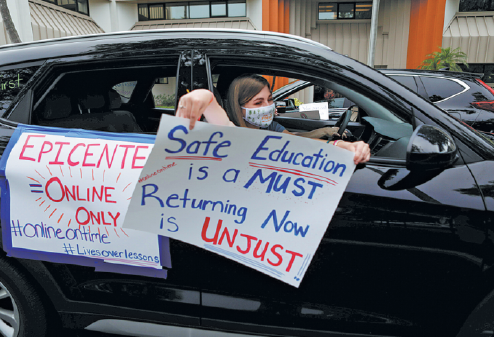 EPICENTE
= ONLINE
ONLY
#onlineontime
#Livesoverlessons
Safe Education
is a MUST
Returning Now
is UNJUST